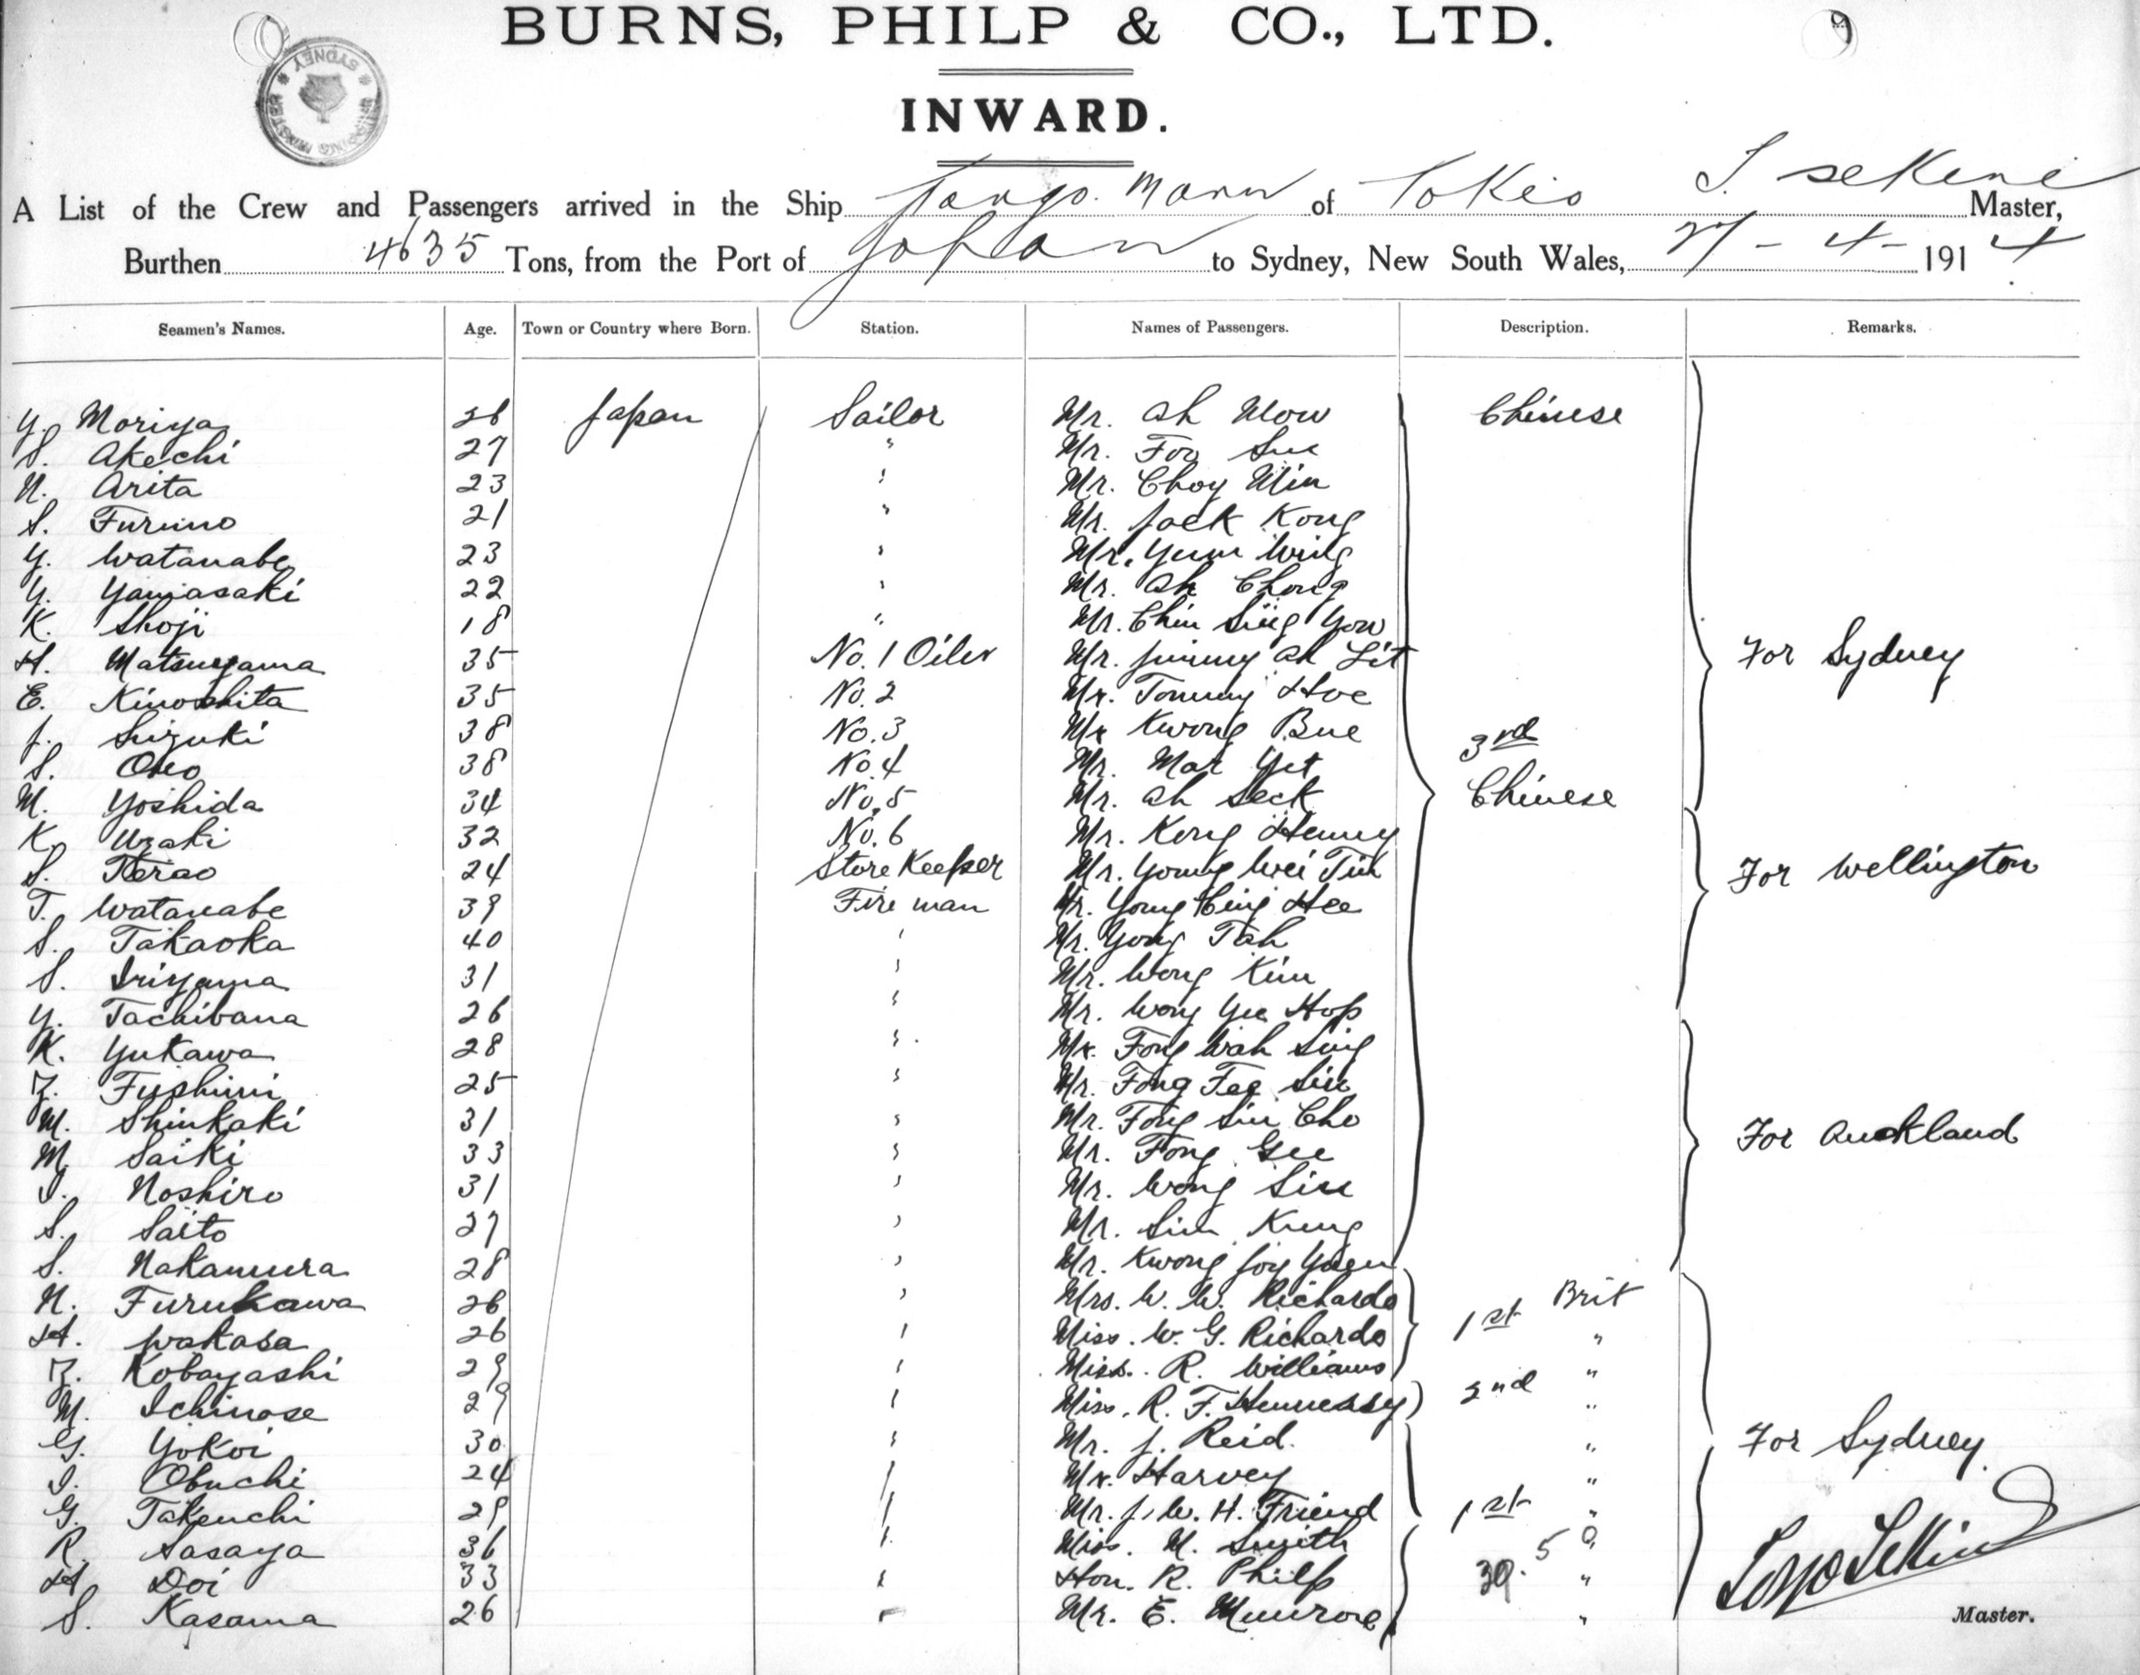 BURNS, PHILP & CO., LTD.
INWARD.
A List of the Crew and Passengers arrived in the Ship Tango Maru of Tokio S. Sekine Master,
Burthen 4635 Tons, from the Port of Japan to Sydney, New South Wales, 27-4-1914
Seamen's Names. Age. Town or Country where Born. Station. Names of Passengers. Description. Remarks.
Y. Moriya 26 Japan Sailor Mr. Ah Mow Chinese
S. Akechi 27 " Mr. Foo Sue
N. Arita 23 " Mr. Choy Min
S. Furuno 21 " Mr. Jack Kong
Y. Watanabe 23 " Mr. Yum Wing
Y. Yamasaki 22 " Mr. Ah Chong
K. Shoji 18 " Mr. Chin Sing Yow
H. Matsuyama 35 No. 1 Oiler Mr. Jimmy Ah Lit For Sydney
E. Kinoshita 35 No. 2 Mr. Tommy Hoe
J. Suzuki 38 No. 3 Mr Kwong Bue 3rd
S. Ono 38 No. 4 Mr. Mar Yet
M. Yoshida 34 No. 5 Mr. Ah Seck Chinese
K. Uzaki 32 No. 6 Mr. Kong Henny
S. Terao 24 Store Keeper Mr. Young Wei Tim For Wellington
T. Watanabe 39 Fire man Mr. Yong Hing Hee
S. Takaoka 40 " Mr. Yong Tah
S. Iriyama 31 " Mr. Wong Kim
Y. Tachibana 26 " Mr. Wong Yee Hop
K. Yukawa 28 " Mr. Fong Wah Sing
Z. Fushimi 25 " Mr. Fong Fee Sin
M. Shinkaki 31 " Mr. Fong Sin Cho For Auckland
M. Saiki 33 " Mr. Fong Gee
I. Noshiro 31 " Mr. Wong Sin
S. Saito 27 " Mr. Sim Kung
S. Nakamura 28 " Mr. Kwong Joy Yuen
N. Furukawa 26 " Mrs. W. W. Richards 1st Brit
H. Wakasa 26 " Miss. W. G. Richards "
Z. Kobayashi 29 " Miss. R. Williams "
M. Ichinose 29 " Miss. R. F. Hennessy 2nd "
G. Yokoi 30 " Mr. J. Reid. " For Sydney
I. Obuchi 24 " Mr. Harvey "
G. Takeuchi 29 " Mr. J. W. H. Friend 1st "
R. Sasaya 36 " Miss. M. Smith "
H. Doi 33 " Hon. R. Philp 39. 5 "
S. Kasama 26 " Mr. E. Munroe "
Master.